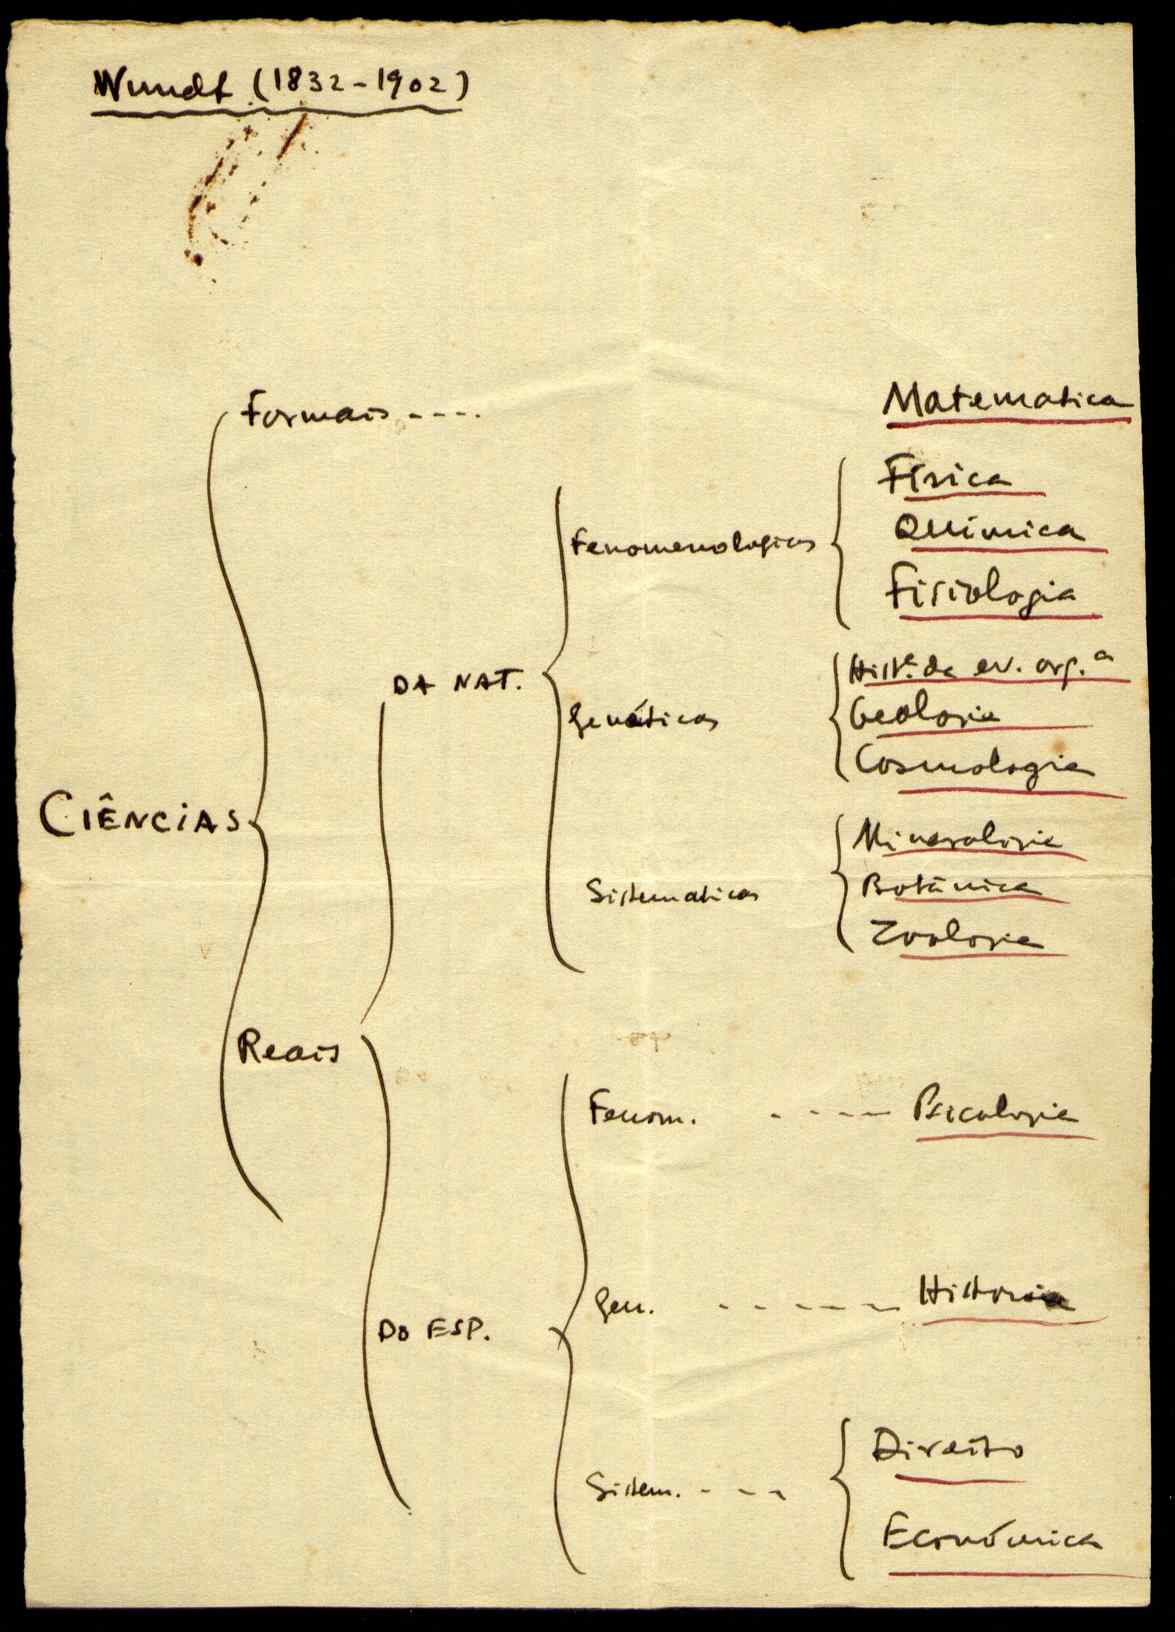 Wundt (1832-1902)
Formais ----
Matematica
Física
Fenomenologicas
Química
Fisiologia
DA NAT.
Hist.ª da ev. org.ª
Genéticas
Geologia
Cosmologia
CIÊNCIAS
Mineralogia
Sistematicas
Botânica
Zoologia
Reais
Fenom. - - - - Psicologia
Gen. - - - - - - Historia
DO ESP.
Direito
Sistem. - - -
Económica